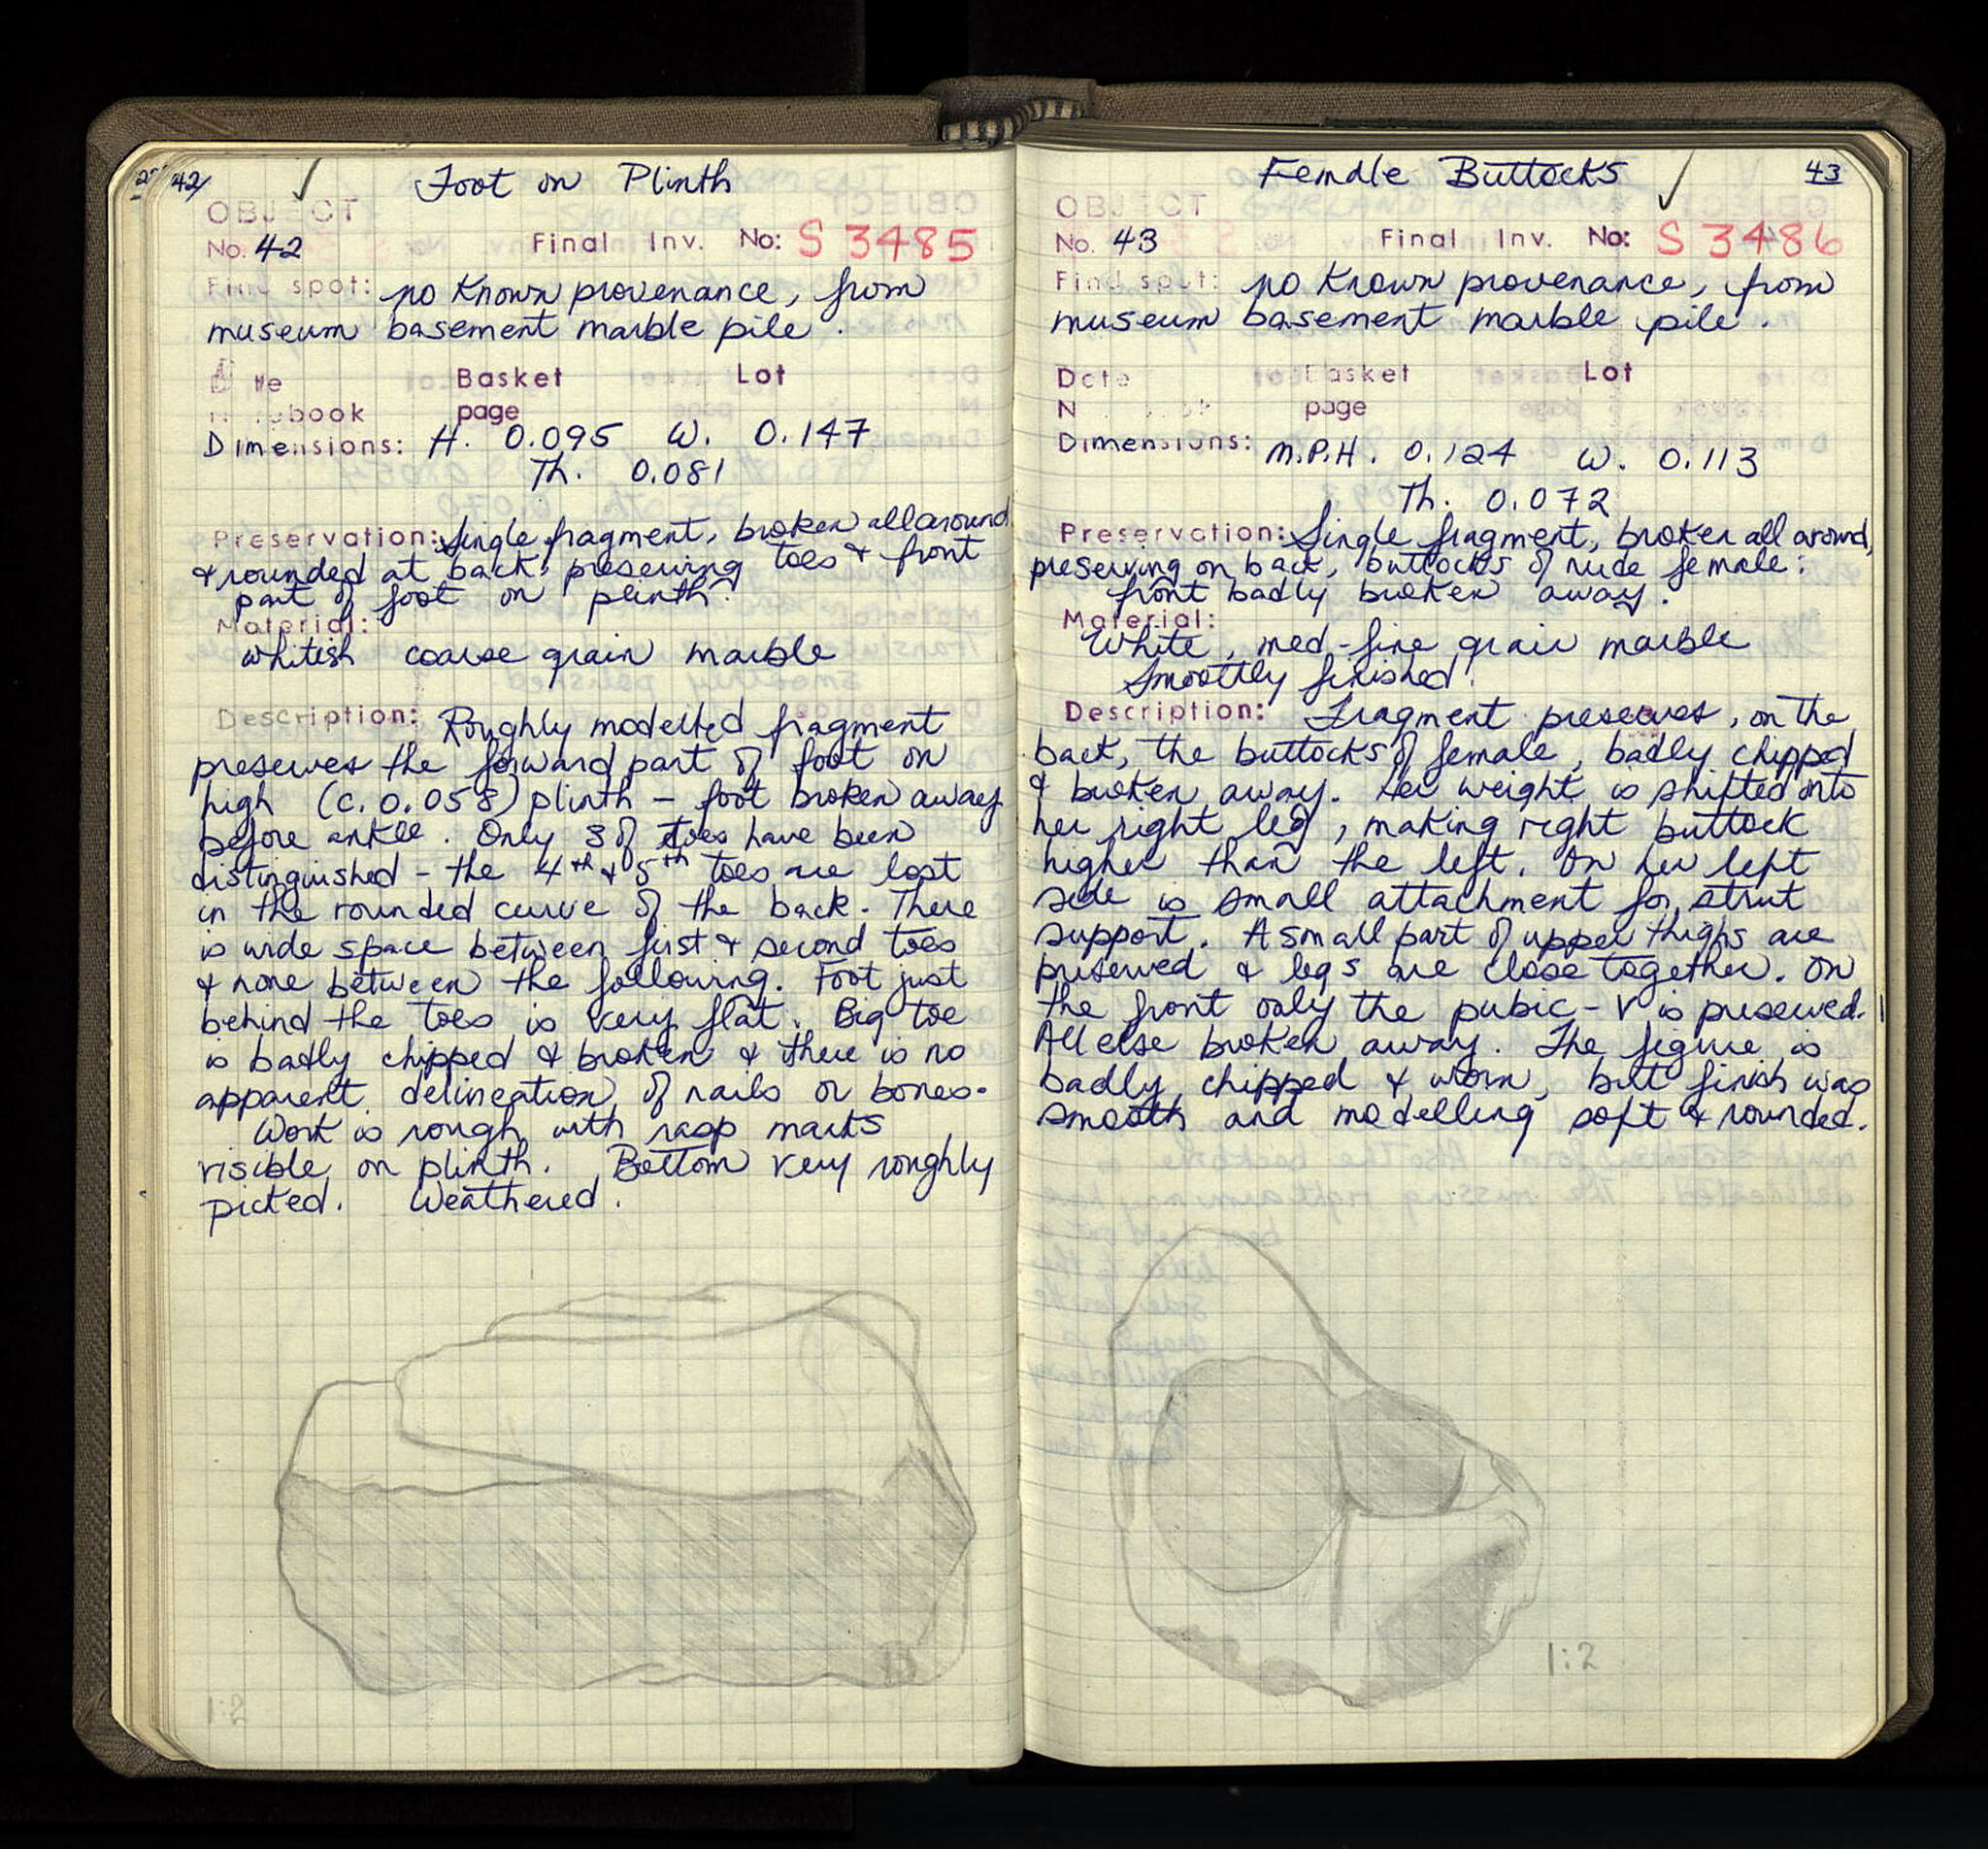 42/ ✓ Foot on Plinth
OBJECT
No. 42 Final Inv. No: S 3485
Find spot: no known provenance, from
museum basement marble pile.
Date Basket Lot
Notebook page
Dimensions: H. 0.095 W. 0.147
Th. 0.081
Preservation: Single fragment, broken all around
& rounded at back, preserving toes & front
part of foot on plinth.
Material:
Whitish coarse grain marble
Description: Roughly modelled fragment
preserves the forward part of foot on
high (c. 0.058) plinth – foot broken away
before ankle. Only 3 of toes have been
distinguished – the 4th & 5th toes are lost
in the rounded curve of the back. There
is wide space between first & second toes
& none between the following. Foot just
behind the toes is very flat. Big toe
is badly chipped & broken & there is no
apparent delineation of nails or bones.
Work is rough with rasp marks
visible on plinth. Bottom very roughly
picked. Weathered.
1:2
Female Buttocks ✓ 43
OBJECT
No. 43 Final Inv. No: S 3486
Find spot: no known provenance, from
museum basement marble pile.
Date Basket Lot
N page
Dimensions: M.P.H. 0.124 W. 0.113
Th. 0.072
Preservation: Single fragment, broken all around,
preserving on back, buttocks of nude female:
front badly broken away.
Material:
White, med-fine grain marble
Smoothly finished.
Description: Fragment preserves, on the
back, the buttocks of female, badly chipped
& broken away. Her weight is shifted onto
her right leg, making right buttock
higher than the left. On her left
side is small attachment for strut
support. A small part of upper thighs are
preserved & legs are close together. On
the front only the pubic-V is preserved.
All else broken away. The figure is
badly chipped & worn, but finish was
smooth and modelling soft & rounded.
1:2